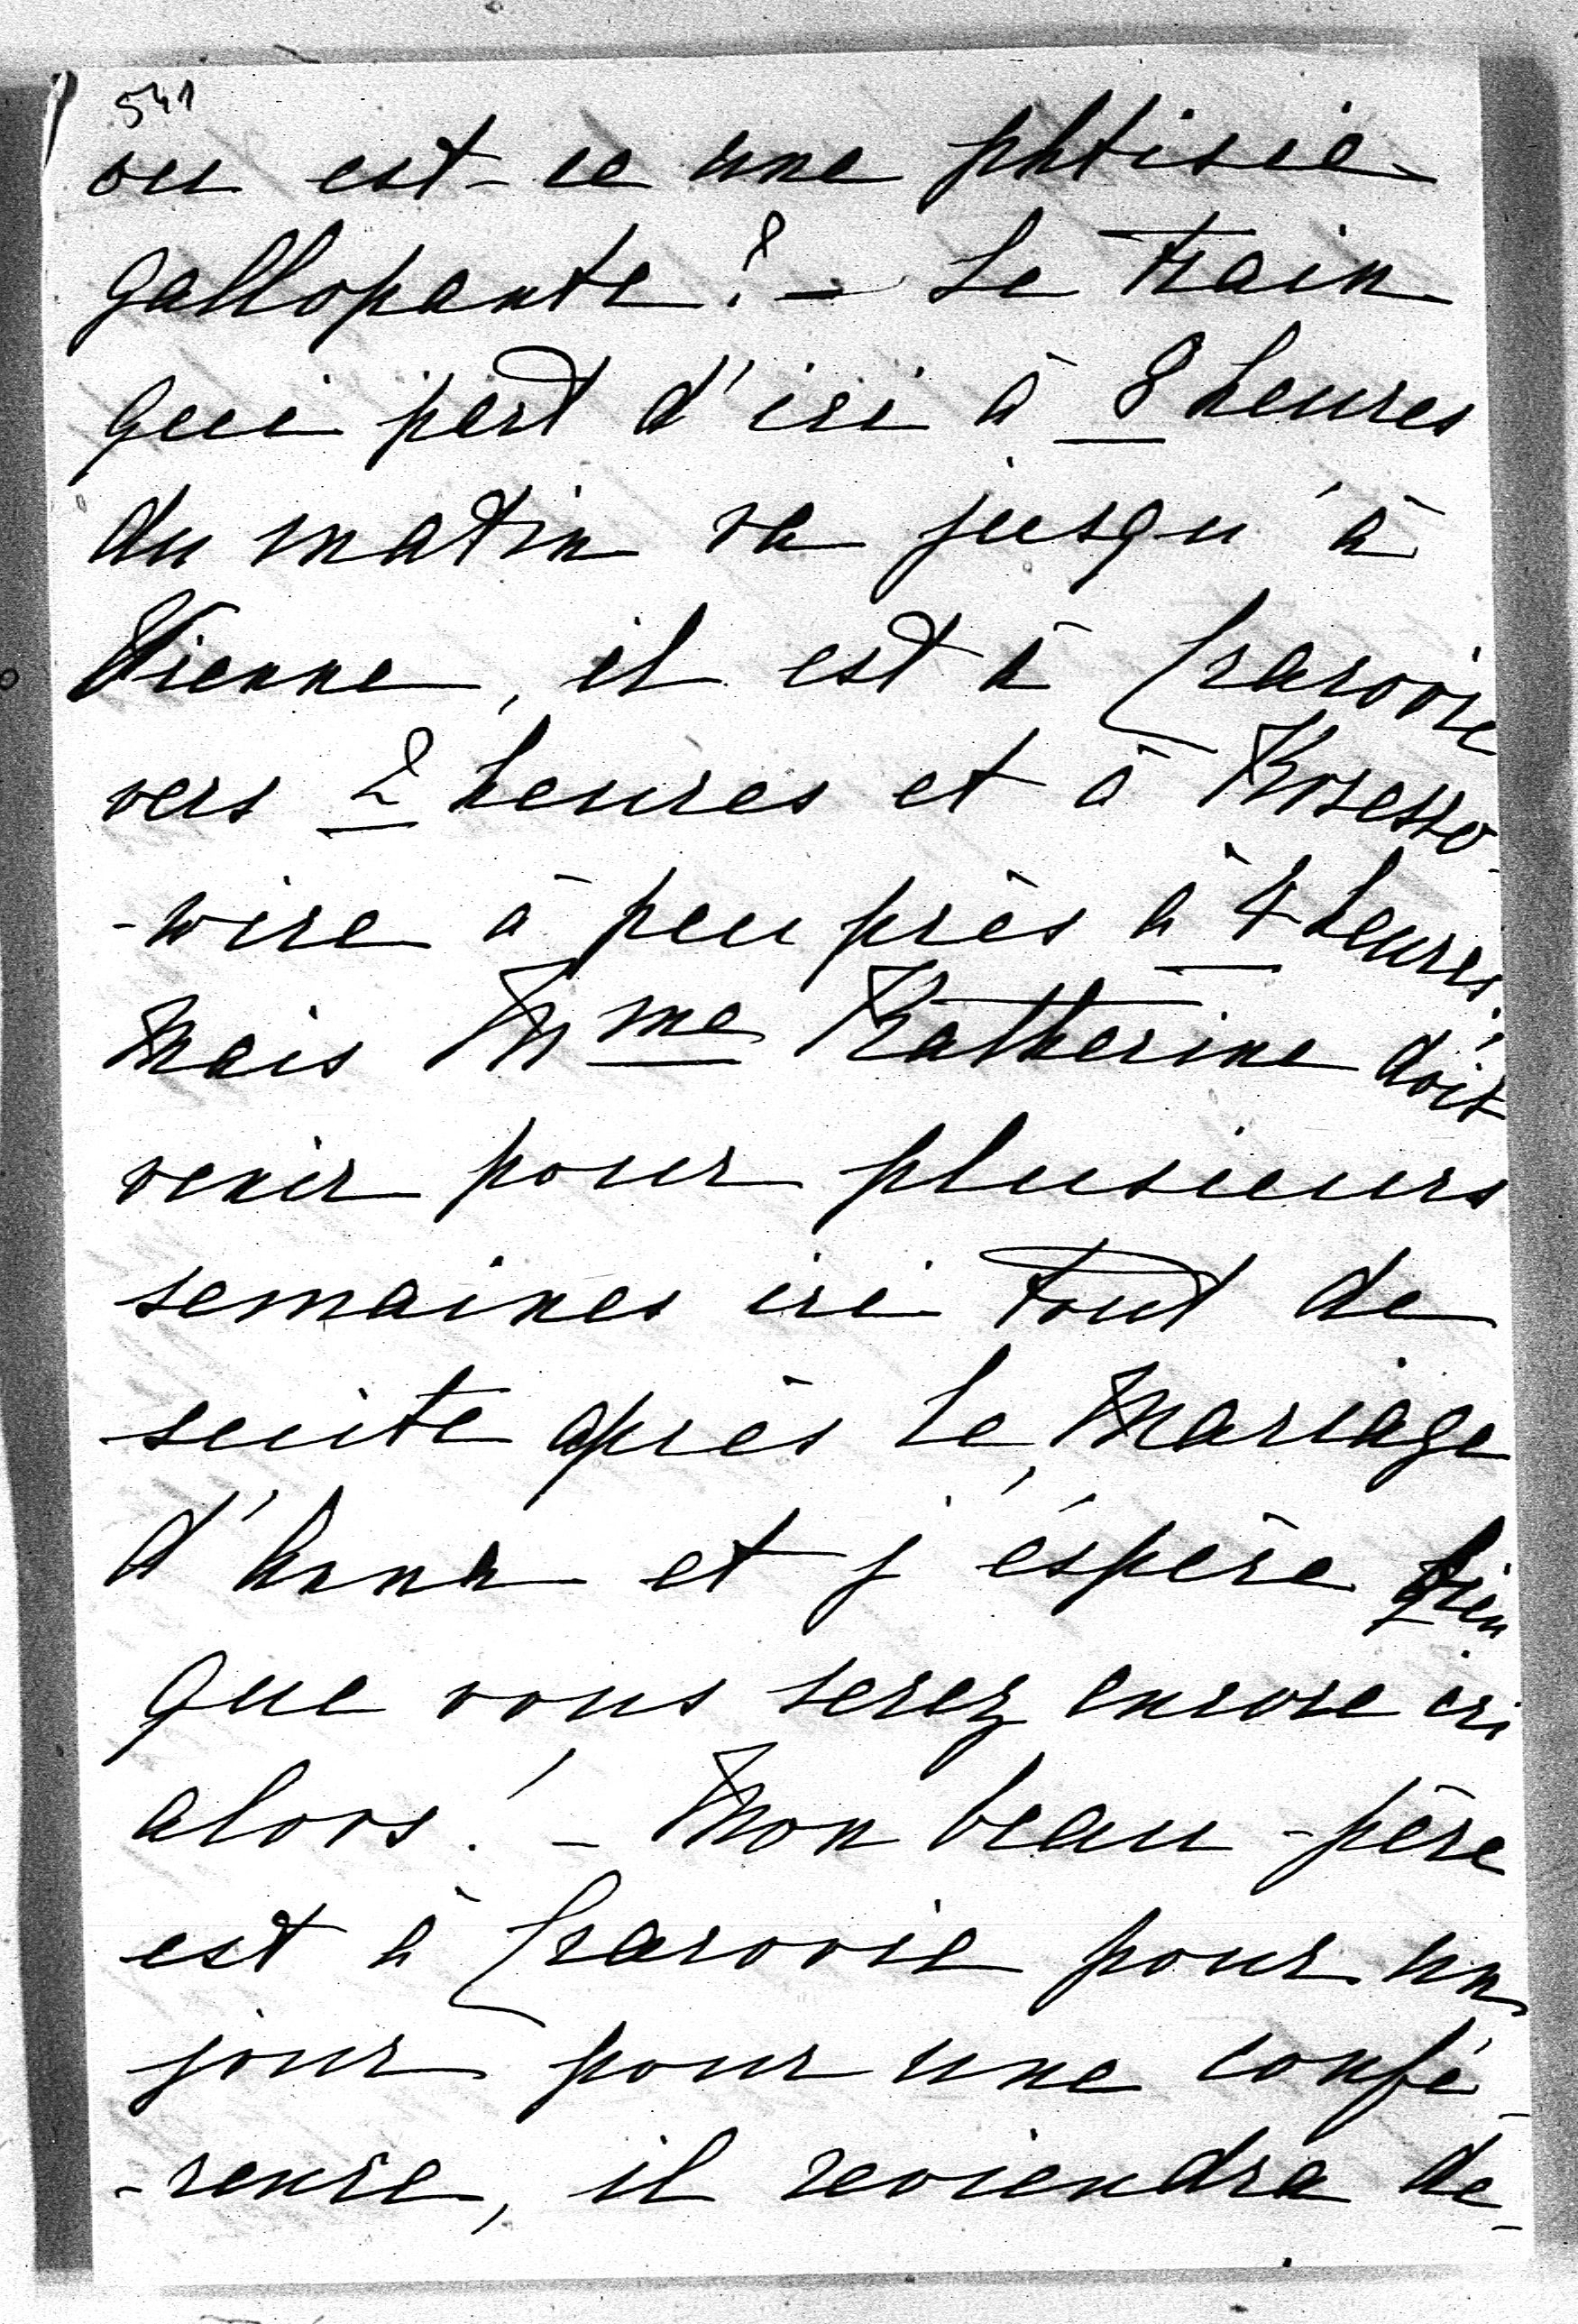 541
ou est-ce une phtisie
gallopante? – Le train
qui part d'ici à 8 heures
du matin va jusqu'à
Vienne, il est à Cracovie
vers 2 heures et à Krzesso-
-wice à peu près à 4 heures.
Mais Mme Katherine doit
venir pour plusieurs
semaines ici tout de
suite après le Mariage
d'Anna et j'éspère bien
que vous serez encore ici
alors! – Mon beau-père
est à Cracovie pour un
jour pour une confé-
-rence, il reviendra de-